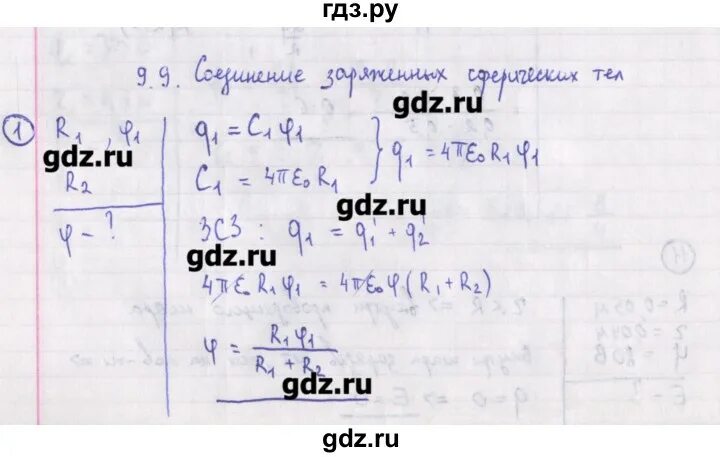 гдз.ру
9.9. Соединение заряженных сферических тел
gdz.ru
1 R₁, φ₁ q₁ = C₁φ₁
gdz.ru
R₂ C₁ = 4πε₀R₁ q₁ = 4πε₀R₁φ₁
gdz.ru
φ - ? ЗСЗ : q₁ = q₁' + q₂'
gdz.ru
4πε₀R₁φ₁ = 4πε₀φ(R₁ + R₂)
φ = R₁φ₁ / R₁ + R₂
gdz.ru
gdz.ru